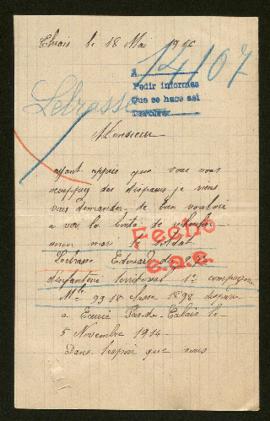 Thiais le 18 Mai 1916
14107
A
Pedir informes
Que se hace asi
Devolver
Lebrasse
Monsieur
ayant appris que vous vous
occuppez des disparus je vous
vais demander de bien vouloir
a voir la bonté de
mon mari le soldat
Fecho
Edouard
e.a.e.
d'infanterie territorial 1e compagnie
Mle 9918 classe 1898 disparu
a Pas-de-Calais le
5 Novembre 1914
Dans l'espoir que vous